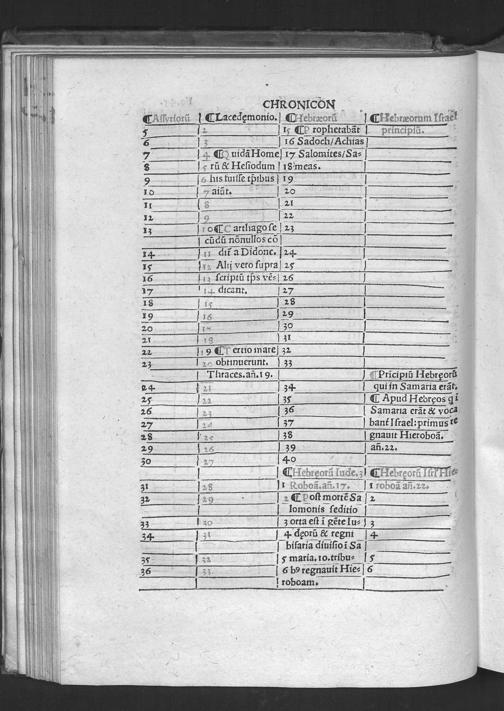 CHRONICON
¶Assyriorū ¶Lacedęmonio. ¶Hebræorū ¶Hebræorum Israel
5 2 15 Prophetabāt principiū.
6 3 16 Sadoch/Achias
7 4 ¶Quidā Home 17 Salomites/Sa-
8 5 rū & Hesiodum 18 meas.
9 6 his fuisse tp̄ibus 19
10 7 aiūt. 20
11 8 21
12 9 22
13 10 ¶Carthago se 23
cūdū nōnullos cō
14 11 dit̄ a Didone. 24
15 12 Alij vero supra 25
16 13 scriptū tp̄s vē- 26
17 14 dicant. 27
18 15 28
19 16 29
20 30
21 18 31
22 19 ¶Tertio mare 32
23 20 obtinuerunt. 33
Thraces. añ. 19. ¶Pricipiū Hebręorū
24 21 34 qui in Samaria erāt.
25 22 35 ¶ Apud Hebręos q i
26 23 36 Samaria erāt & voca
27 24 37 bant̄ Israel: primus re
28 25 38 gnauit Hieroboā.
29 26 39 añ. 22.
30 27 40
¶Hebręorū Iude. 3 ¶Hebręorū Isrl̄ Hie
31 28 1 Roboā. añ. 17. 1 roboā añ. 22.
32 29 2 ¶Post mortē Sa 2
lomonis seditio
33 30 3 orta est ī gēte Iu- 3
34 31 4 dęorū & regni 4
bifaria diuisio ī Sa
35 32 5 maria. 10. tribu- 5
36 33 6 bꝰ regnauit Hie- 6
roboam.